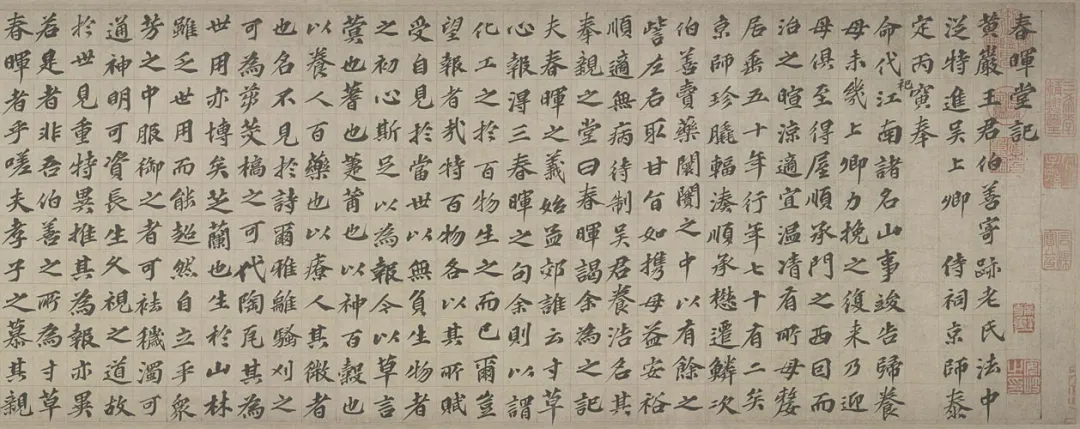 春暉堂記
黃巖王君伯善寄跡老氏法中
從特進吳上卿 侍祠京師泰
定丙寅奉
命代祀江南諸名山事竣告歸養
母未幾上卿力挽之復来乃迎
母俱至得屋順承門之西曰而
治之暄涼適宜温凊有所母嫠
居垂五十年行年七十有二矣
京師珍䑋輻湊順承懋遷鱗次
伯善賣藥闤闠之中以有餘之
訾左右取甘旨如携母益安裕
順適無病待制吳君養浩名其
奉親之堂曰春暉謁余為之記
夫春暉之義始孟郊誰云寸草
心報得三春暉之句余則以謂
化工之於百物生之而已爾豈
望報者㢤特百物各以其所賦
受自見於當世以無負生物者
之初心斯足以為報今以草言
蓂也蓍也箑莆也以神百穀也
以養人百藥也以療人其微者
也名不見於詩爾雅離騷刈之
可為蒭茭槁之可代陶瓦其為
世用亦博矣芝蘭也生於山林
雖乏世用而能超然自立乎衆
芳之中服御之者可祛穢濁可
通神明可資長生久視之道故
於世見重特異推其為報亦異
若是者非吾伯善之所為寸草
春暉者乎嗟夫孝子之慕其親